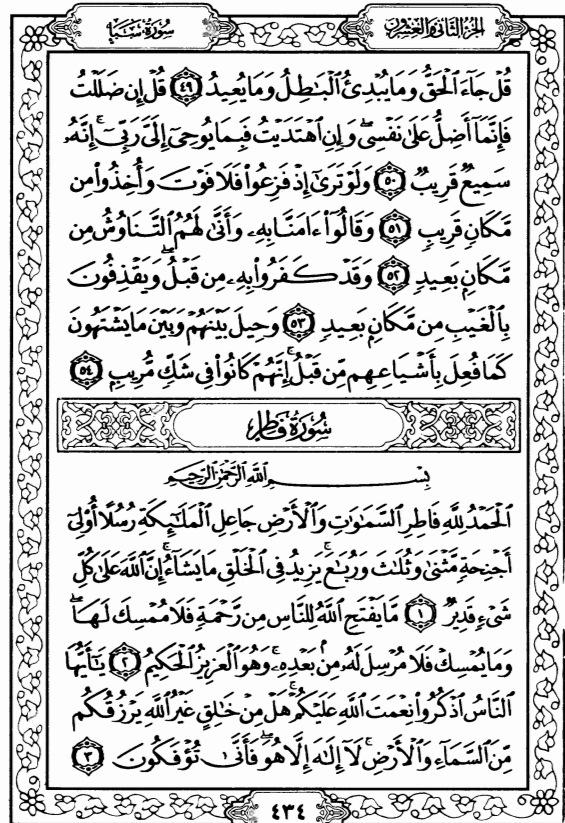 الجزء الثاني والعشرون
سورة سبأ
قُلۡ جَآءَ ٱلۡحَقُّ وَمَا يُبۡدِئُ ٱلۡبَٰطِلُ وَمَا يُعِيدُ ٤٩ قُلۡ إِن ضَلَلۡتُ
فَإِنَّمَآ أَضِلُّ عَلَىٰ نَفۡسِيۖ وَإِنِ ٱهۡتَدَيۡتُ فَبِمَا يُوحِيٓ إِلَيَّ رَبِّيٓۚ إِنَّهُۥ
سَمِيعٞ قَرِيبٞ ٥٠ وَلَوۡ تَرَىٰٓ إِذۡ فَزِعُواْ فَلَا فَوۡتَ وَأُخِذُواْ مِن
مَّكَانٖ قَرِيبٖ ٥١ وَقَالُوٓاْ ءَامَنَّا بِهِۦ وَأَنَّىٰ لَهُمُ ٱلتَّنَاوُشُ مِن
مَّكَانِۭ بَعِيدٖ ٥٢ وَقَدۡ كَفَرُواْ بِهِۦ مِن قَبۡلُۖ وَيَقۡذِفُونَ
بِٱلۡغَيۡبِ مِن مَّكَانِۭ بَعِيدٖ ٥٣ وَحِيلَ بَيۡنَهُمۡ وَبَيۡنَ مَا يَشۡتَهُونَ
كَمَا فُعِلَ بِأَشۡيَاعِهِم مِّن قَبۡلُۚ إِنَّهُمۡ كَانُواْ فِي شَكّٖ مُّرِيبِۭ ٥٤
سورة فاطر
بِسۡمِ ٱللَّهِ ٱلرَّحۡمَٰنِ ٱلرَّحِيمِ
ٱلۡحَمۡدُ لِلَّهِ فَاطِرِ ٱلسَّمَٰوَٰتِ وَٱلۡأَرۡضِ جَاعِلِ ٱلۡمَلَٰٓئِكَةِ رُسُلًا أُوْلِيٓ
أَجۡنِحَةٖ مَّثۡنَىٰ وَثُلَٰثَ وَرُبَٰعَۚ يَزِيدُ فِي ٱلۡخَلۡقِ مَا يَشَآءُۚ إِنَّ ٱللَّهَ عَلَىٰ كُلِّ
شَيۡءٖ قَدِيرٞ ١ مَّا يَفۡتَحِ ٱللَّهُ لِلنَّاسِ مِن رَّحۡمَةٖ فَلَا مُمۡسِكَ لَهَاۖ
وَمَا يُمۡسِكۡ فَلَا مُرۡسِلَ لَهُۥ مِنۢ بَعۡدِهِۦۚ وَهُوَ ٱلۡعَزِيزُ ٱلۡحَكِيمُ ٢ يَٰٓأَيُّهَا
ٱلنَّاسُ ٱذۡكُرُواْ نِعۡمَتَ ٱللَّهِ عَلَيۡكُمۡۚ هَلۡ مِنۡ خَٰلِقٍ غَيۡرُ ٱللَّهِ يَرۡزُقُكُم
مِّنَ ٱلسَّمَآءِ وَٱلۡأَرۡضِۚ لَآ إِلَٰهَ إِلَّا هُوَۖ فَأَنَّىٰ تُؤۡفَكُونَ ٣
٤٣٤